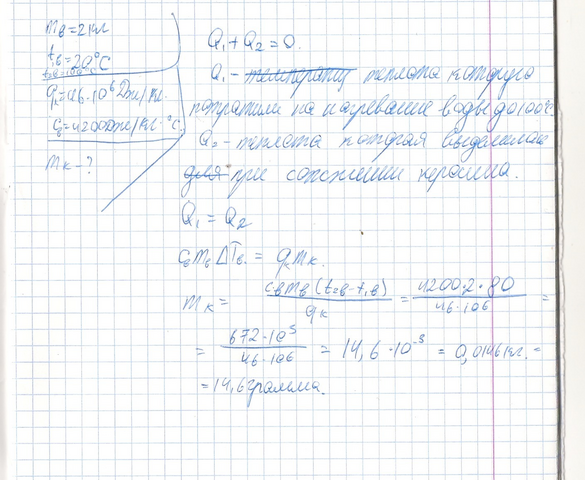 mв = 2 кг
t₁в = 20°C
t₂в = 100°C
qк = 46·10⁶ Дж/кг.
cв = 4200 Дж/кг·°C.
mк - ?
Q₁ + Q₂ = 0.
Q₁ - температу теплота которую
потратили на нагревание воды до 100°C.
Q₂ - теплота которая выделилась
для при сожжении керосина.
Q₁ = Q₂
cв mв ΔTв. = qк mк.
mк = cв mв (t₂в - t₁в) / qк = 4200·2·80 / 46·10⁶ =
= 6,72·10⁵ / 46·10⁶ = 14,6·10⁻³ = 0,0146 кг. =
= 14,6 грамма.